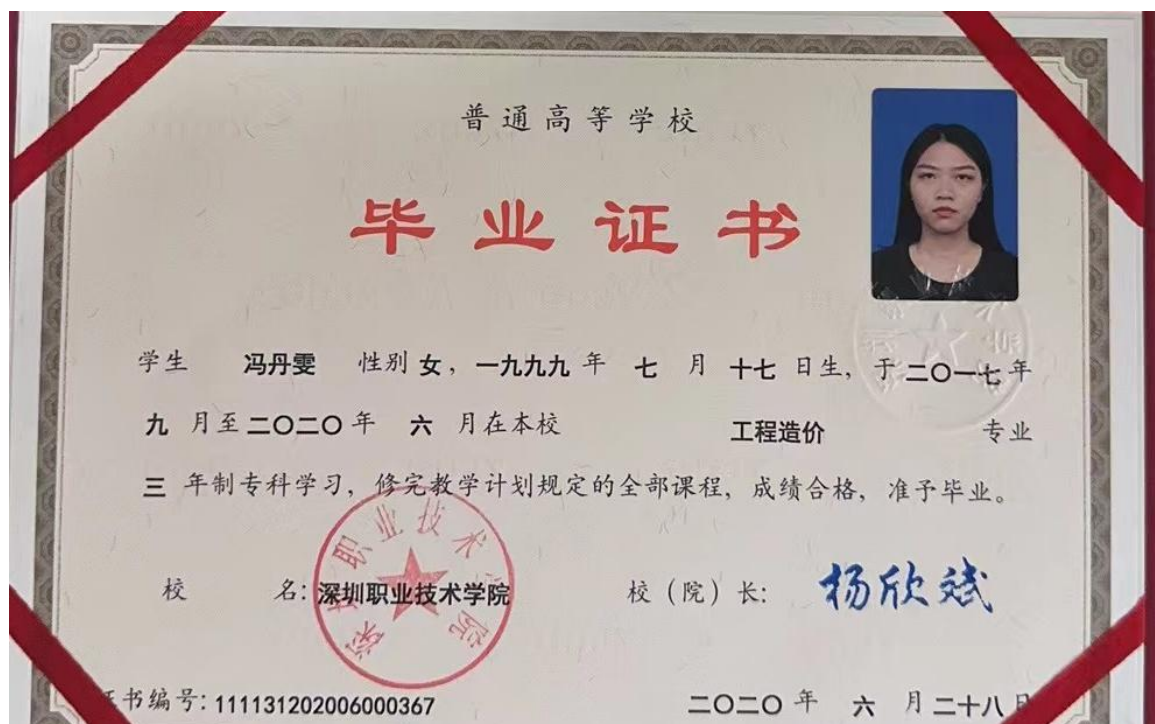 普通高等学校
毕业证书
学生 冯丹雯 性别 女，一九九九 年 七 月 十七 日生，于 二〇一七 年
九 月至 二〇二〇 年 六 月在本校 工程造价 专业
三 年制专科学习，修完教学计划规定的全部课程，成绩合格，准予毕业。
校 名：深圳职业技术学院 校（院）长：杨欣斌
书编号：111131202006000367 二〇二〇 年 六 月 二十八 日